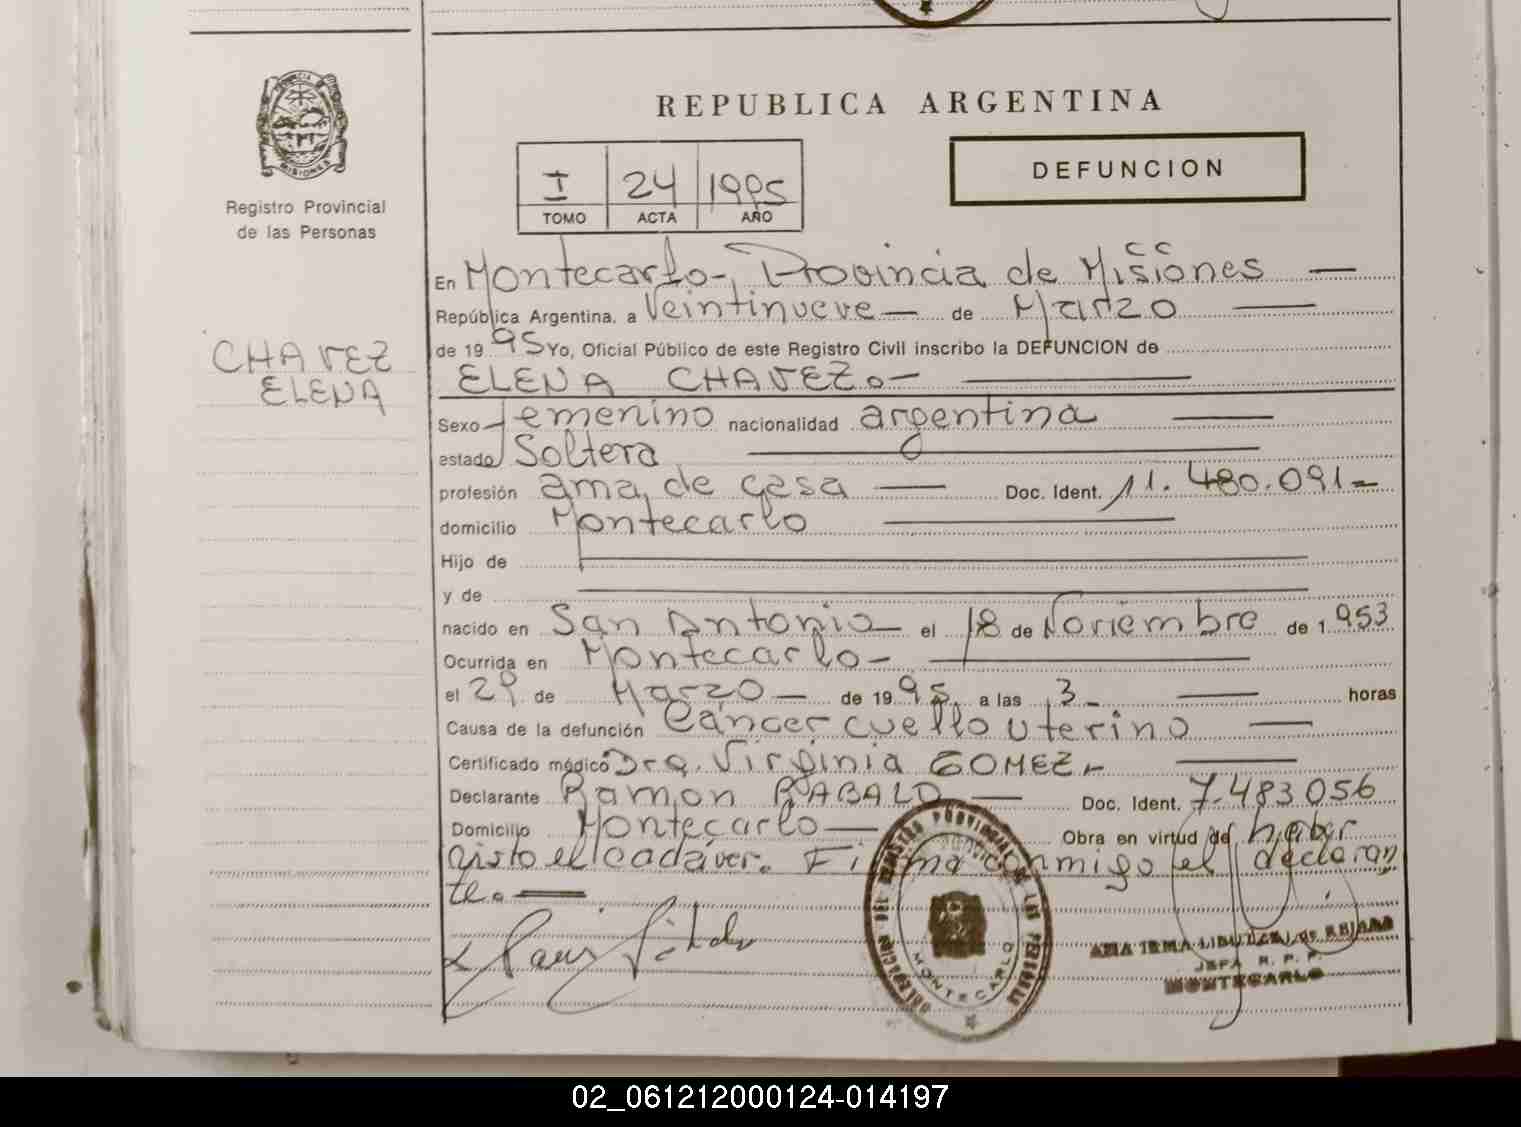 REPUBLICA ARGENTINA
DEFUNCION
I 24 1995
TOMO ACTA AÑO
MISIONES
Registro Provincial
de las Personas
CHAVEZ
ELENA
En Montecarlo-, Provincia de Misiones
República Argentina, a Veintinueve de Marzo
de 1995 Yo, Oficial Público de este Registro Civil inscribo la DEFUNCION de
ELENA CHAVEZ.-
Sexo femenino nacionalidad argentina
estado Soltera
profesión ama de casa Doc. Ident. 11.480.091-
domicilio Montecarlo
Hijo de
y de
nacido en San Antonio el 18 de Noviembre de 1953
Ocurrida en Montecarlo-
el 29 de Marzo de 1995 a las 3 horas
Causa de la defunción Cáncer cuello uterino
Certificado médico Dra. Virginia GOMEZ.-
Declarante Ramon Doc. Ident. 7.483.056
Domicilio Montecarlo Obra en virtud de haber
visto el cadáver. Firma conmigo el declaran
te.
DELEGACION DEL REGISTRO PROVINCIAL DE LAS PERSONAS
MONTECARLO
ANA IRMA
JEFA R. P. P.
MONTECARLO
02_061212000124-014197